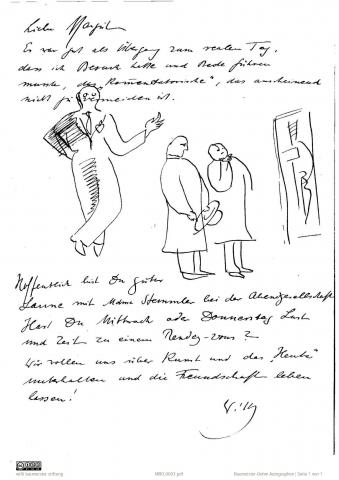 Liebe Margrit
Es war gut als Übergang zum realen Tag,
dass ich Besuch hatte und Rede führen
musste, das „Kommentatorische", das anscheinend
nicht zu vermeiden ist.
Hoffentlich bist Du guter
Laune mit Mdme Stemmler bei der Abendgesellschaft
Hast Du Mittwoch oder Donnerstag Lust
und Zeit zu einem Rendez-vous?
Wir wollen uns über Kunst und das „Heute"
unterhalten und die Freundschaft leben
lassen!
Willy
willi baumeister stiftung
Baumeister-Dahm Autographen | Seite 1 von 1